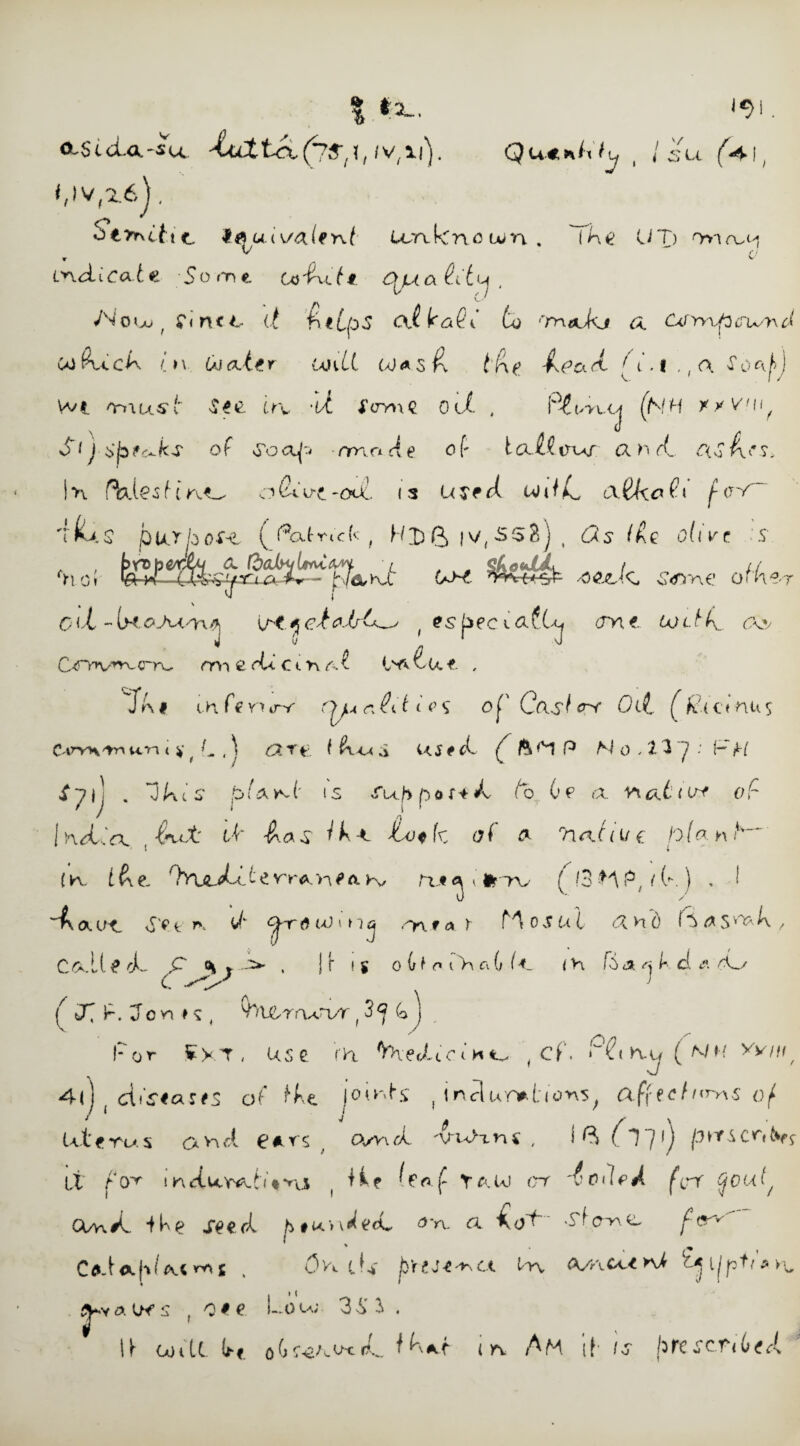 191.
asida-šu luttá (75,1, iv,21). Quantity, 1 šu (41,
1,iv,26).
Semitic equivalent unknown. The UD may
indicate some white quality.
Now, since it helps alkali to make a compound
which in water will wash the head (i.e., a soap)
we must see in it some oil, Pliny (NH xxviii,
51) speaks of soap made of tallow and ashes.
In Palestine olive-oil is used with alkali for
this purpose (Patrick, HDB iv, 558), As the olive is
not properly a Babylonian plant we should seek some other
oil-bearing vegetable, especially one with a
common medicinal value.
The inferior qualities of Castor Oil (Ricinus
communis, L.,) are thus used (BMP No. 237: FH
571). This plant is supposed to be a native of
India, but it has the look of a native plant
in the Mediterranean region (BMP, ib.). I
have seen it growing near Mosul and Basrah,
called خروع. It is obtainable in Baghdad
(J. F. Jones, Memoir, 396)
For EXT. use in Medicine, cf. Pliny (NH xxiii,
41), diseases of the joints, indurations, affections of
uterus and ears, and burns, IB (171) prescribes
it for indurations, the leaf raw or boiled for gout,
and the seed pounded on a hot stone for
cataplasms. On its presence in ancient Egyptian
graves, see Löw 353.
It will be observed that in AM it is prescribed